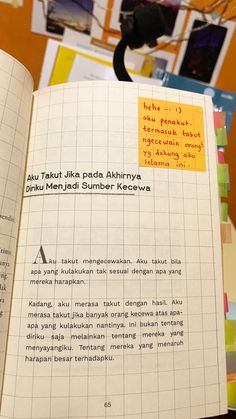 hehe... :)
aku penakut.
termasuk takut
ngecewain orang²
yg dukung aku
selama ini.
Aku Takut Jika pada Akhirnya
Diriku Menjadi Sumber Kecewa
Aku takut mengecewakan. Aku takut bila
apa yang kulakukan tak sesuai dengan apa yang
mereka harapkan.
Kadang, aku merasa takut dengan hasil. Aku
merasa takut jika banyak orang kecewa atas apa-
apa yang kulakukan nantinya. Ini bukan tentang
diriku saja melainkan tentang mereka yang
menyayangiku. Tentang mereka yang menaruh
harapan besar terhadapku.
65